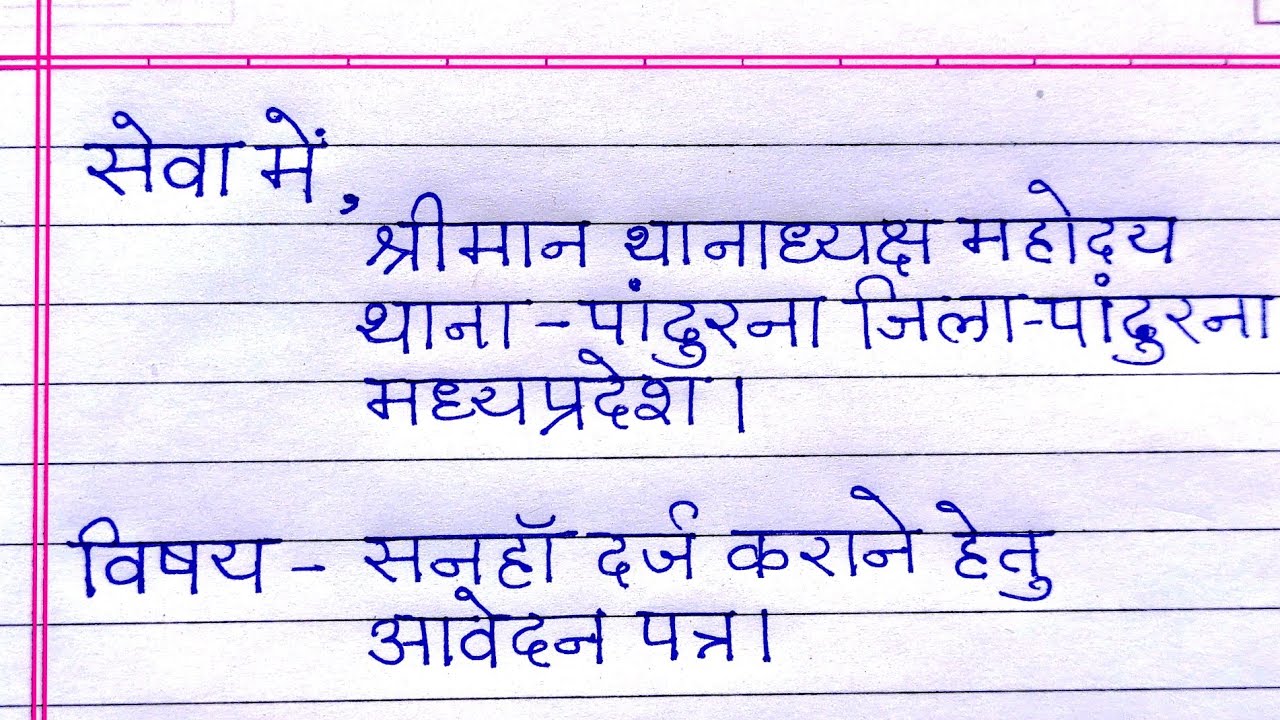 सेवा में,
श्रीमान थानाध्यक्ष महोदय
थाना - पांदुरना जिला-पांदुरना
मध्यप्रदेश।
विषय - सनहॉ दर्ज कराने हेतु
आवेदन पत्र।